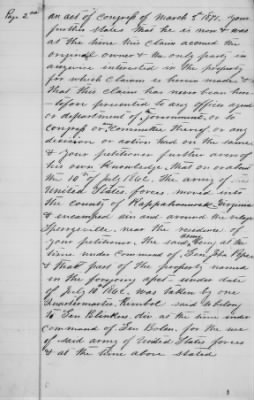 Page 2nd
an act of Congress of March 3rd 1871. your
further states that he is now & was
at the time this claim accrued the
original owner & the only party in
anywise interested in the property
for which claim is herein made &
that this claim has never been here
-tofore presented to any office agent
or department of government, or to
Congress or any Committee thereof, or any
decision or action had in the same
& your petitioner further avers of
his own knowledge, that on or about
the 10th of July 1862. the army of
United States forces moved into
the county of Rappahannock Virginia
& encamped in and around the village
Sperryville, near the residence of
your petitioner, the said army being at the
time under command of Gen Jno Pope
& that part of the property named
in the foregoing under date
of July 10th 1862, was taken by one
Quartermaster, Kimbol said to belong
to Gen Blenkers div at the time under
command of Gen Bolen. for the use
of said army of United States forces
& at the time above stated